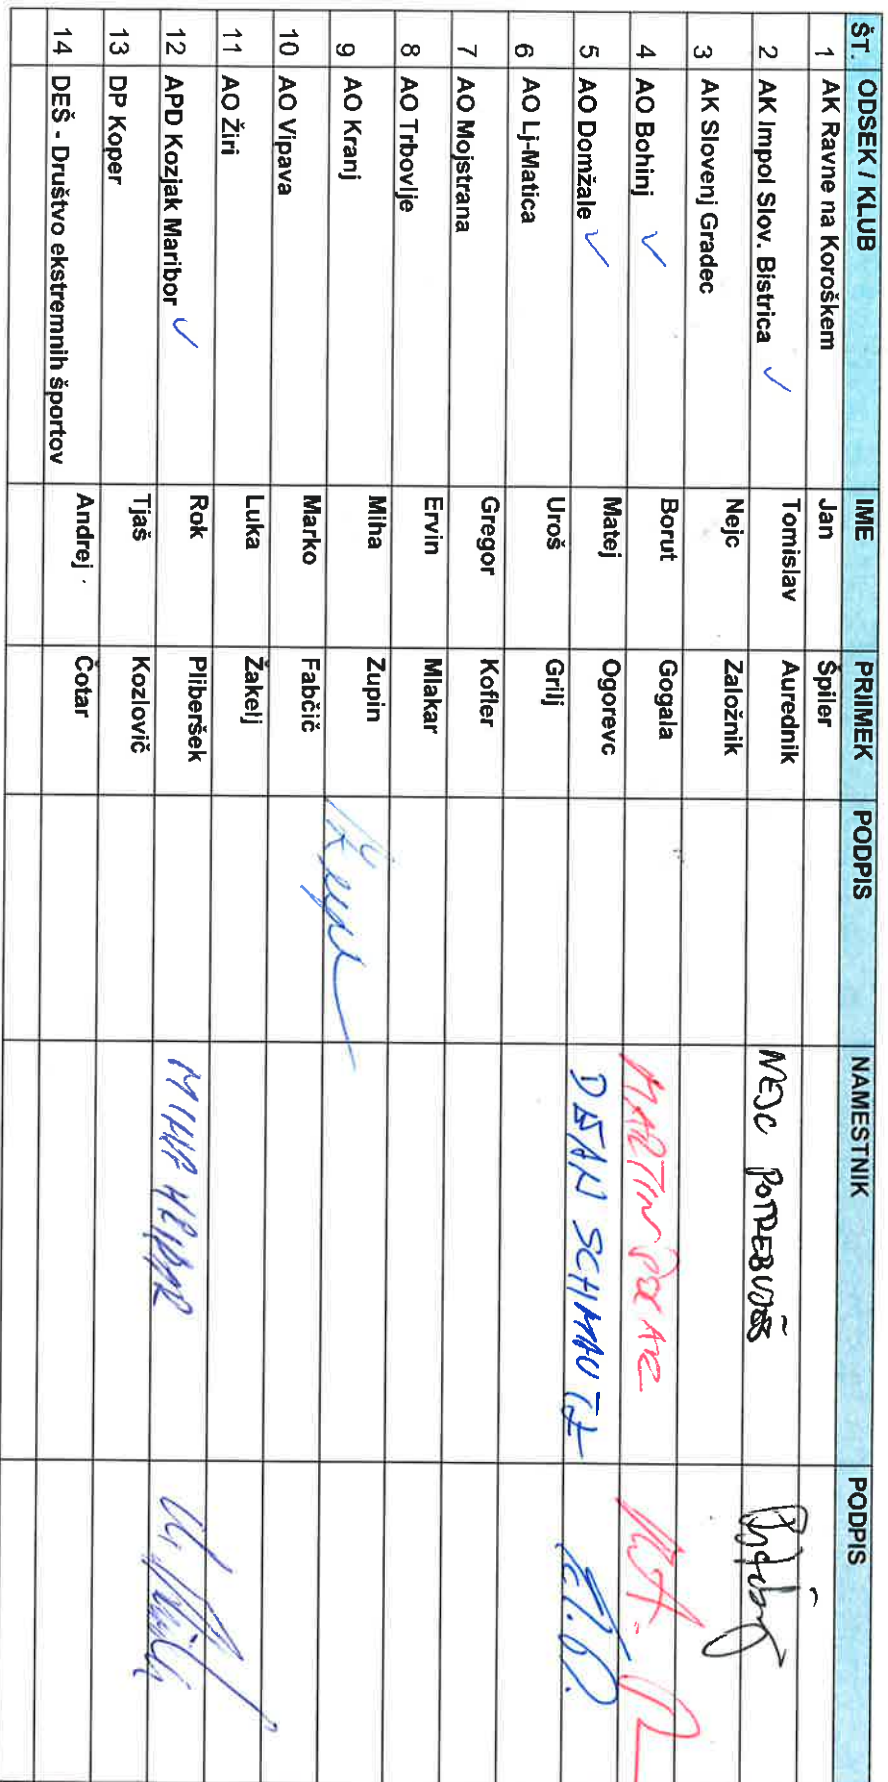 ŠT. ODSEK / KLUB IME PRIIMEK PODPIS NAMESTNIK PODPIS
1 AK Ravne na Koroškem Jan Špiler
2 AK Impol Slov. Bistrica ✓ Tomislav Aurednik NEJC POTREBUJEŠ
3 AK Slovenj Gradec Nejc Založnik
4 AO Bohinj ✓ Borut Gogala MARTIN
5 AO Domžale ✓ Matej Ogorevc DEJAN SCHMAUTZ
6 AO Lj-Matica Uroš Grilj
7 AO Mojstrana Gregor Kofler
8 AO Trbovlje Ervin Mlakar
9 AO Kranj Miha Zupin
10 AO Vipava Marko Fabčič
11 AO Žiri Luka Žakelj
12 APD Kozjak Maribor ✓ Rok Pliberšek MIHA HABJAR
13 DP Koper Tjaš Kozlovič
14 DEŠ - Društvo ekstremnih športov Andrej Čotar